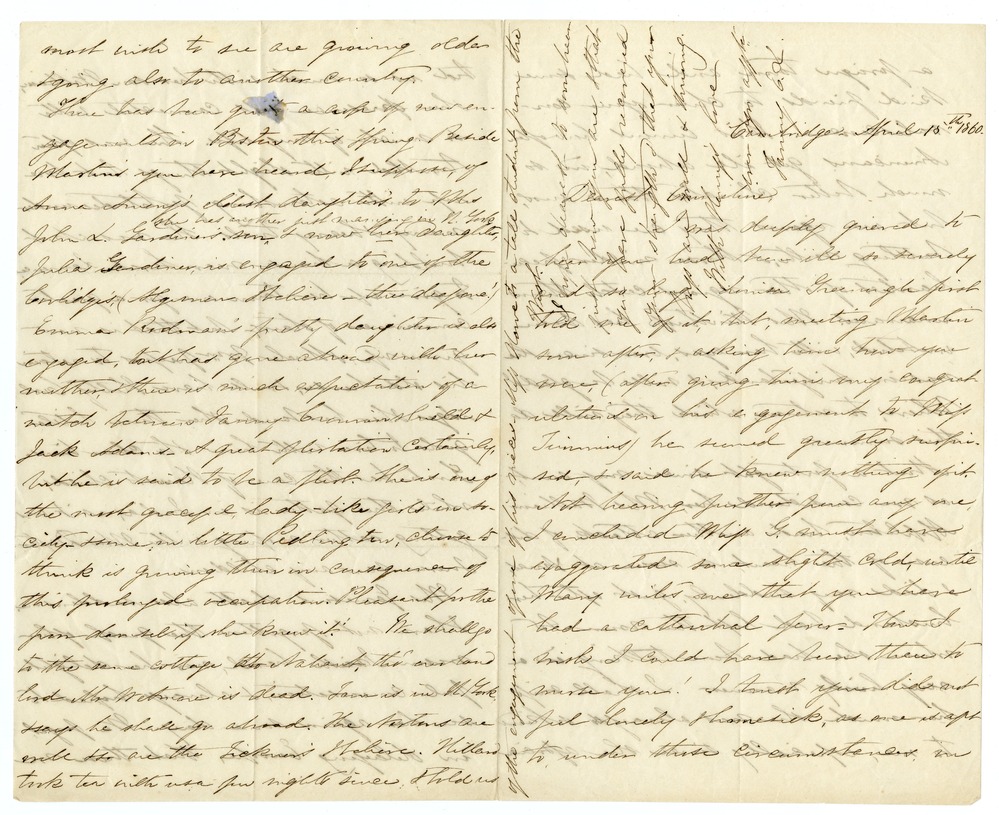 Cambridge April 15th 1860.
Dearest Emmeline,
I was deeply grieved to
hear you had been ill so severely
& so long. Louisa Greenough first
told me of it, but, meeting Martin
soon after, & asking him how you
were (after giving him my congrat
ulations on his engagement to Miss
Timmins) he seemed greatly surpri-
sed, & said he knew nothing of it.
Not hearing further from any one
I concluded Miss G. must have
exaggerated some slight cold, until
Mary writes me that you have
had a catarrhal fever. How I
wish I could have been there to
nurse you! I trust you did not
feel lonely & homesick, as one is apt
to, under those circumstances in
most wish to see are growing older
& going also to another country.
There has been quite a crop of new en-
gagements in Boston this Spring. Beside
Martin's you have heard, I suppose, of
Anna eldest daughter's to Mrs
she has another just marrying in N. York
John L. Gardiner's son, & now her daughter,
Julia Gardiner, is engaged to one of the
Coolidges, (Algernon I believe – the deaf one)
Emma Rodman's pretty daughter is also
engaged, but has gone abroad with her
mother, & there is much expectation of a
match between Fanny Crowninshield &
Jack Adams. A great flirtation certainly,
but he is said to be a flirt. She is one of
the most graceful, lady-like girls in so-
ciety & some, in little Pedlington, choose to
think is growing thin in consequence of
this prolonged occupation. Pleasant for the
poor damsel if she knew it! We shall go
to the same cottage at Nahant, tho' our land
lord Mr Wetmore is dead. Tom is in N. York
& says he shall go abroad. The Nortons are
well & so are the Ticknors I believe. Hillard
took tea with us a few nights since & told us
of the engagement of one of his nieces, Miss to a tall
West.
I am very anxious to
know how you are & that
you have fully recovered
your strength, & that your
are well & thriving.
With Henry's love
Ever yrs affte
Fanny E. L.